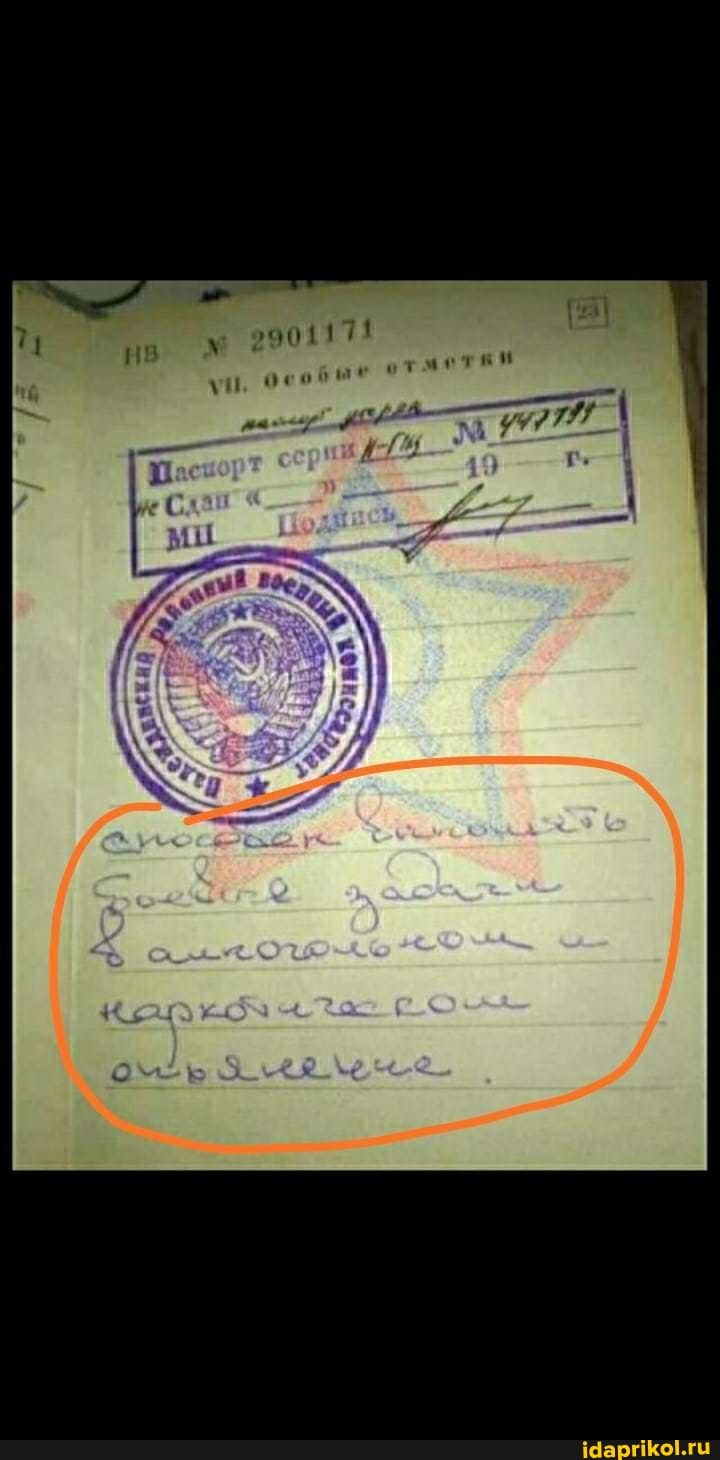 71
НВ № 2901171
23
VII. Особые отметки
паспорт утерян
Паспорт серии № 447799
не Сдан «___» ___ 19 г.
МП Подпись
Надеждинский районный военный комиссариат
способен выполнять
боевые задачи
в алкогольном и
наркотическом
опьянение.
idaprikol.ru